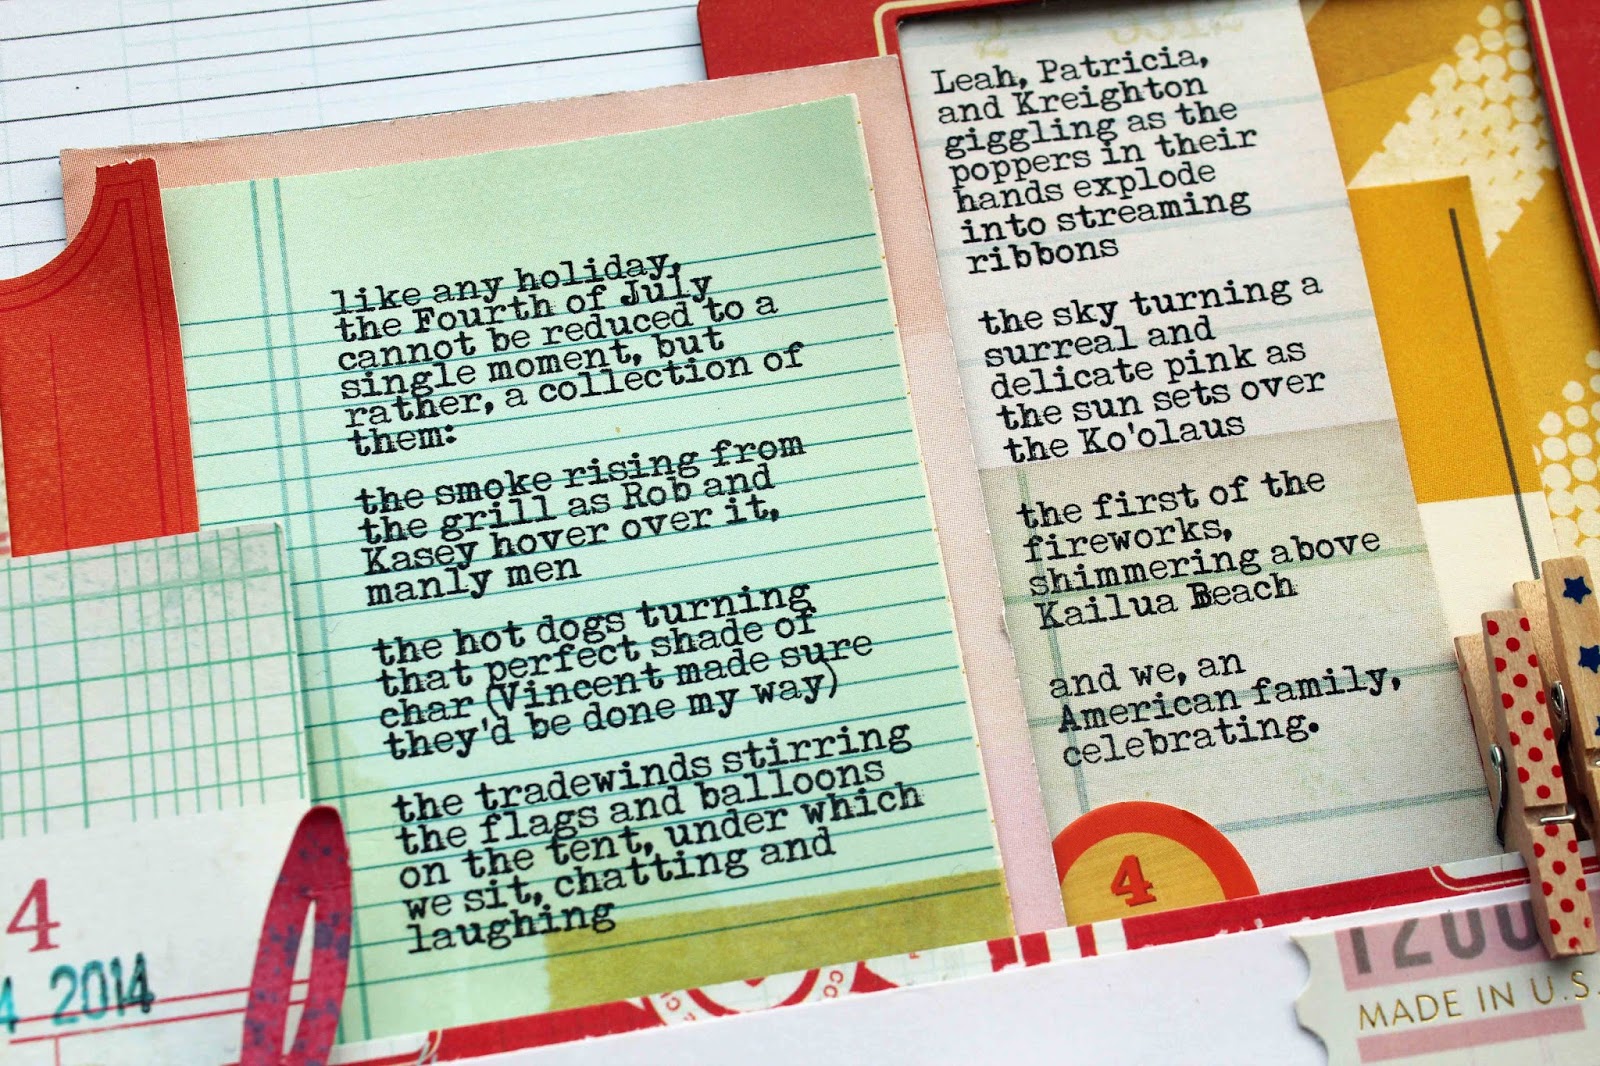 like any holiday,
the Fourth of July
cannot be reduced to a
single moment, but
rather, a collection of
them:
the smoke rising from
the grill as Rob and
Kasey hover over it,
manly men
the hot dogs turning
that perfect shade of
char (Vincent made sure
they'd be done my way)
the tradewinds stirring
the flags and balloons
on the tent, under which
we sit, chatting and
laughing
Leah, Patricia,
and Kreighton
giggling as the
poppers in their
hands explode
into streaming
ribbons
the sky turning a
surreal and
delicate pink as
the sun sets over
the Ko'olaus
the first of the
fireworks,
shimmering above
Kailua Beach
and we, an
American family,
celebrating.
4
4
4 2014
1200
MADE IN U.S.